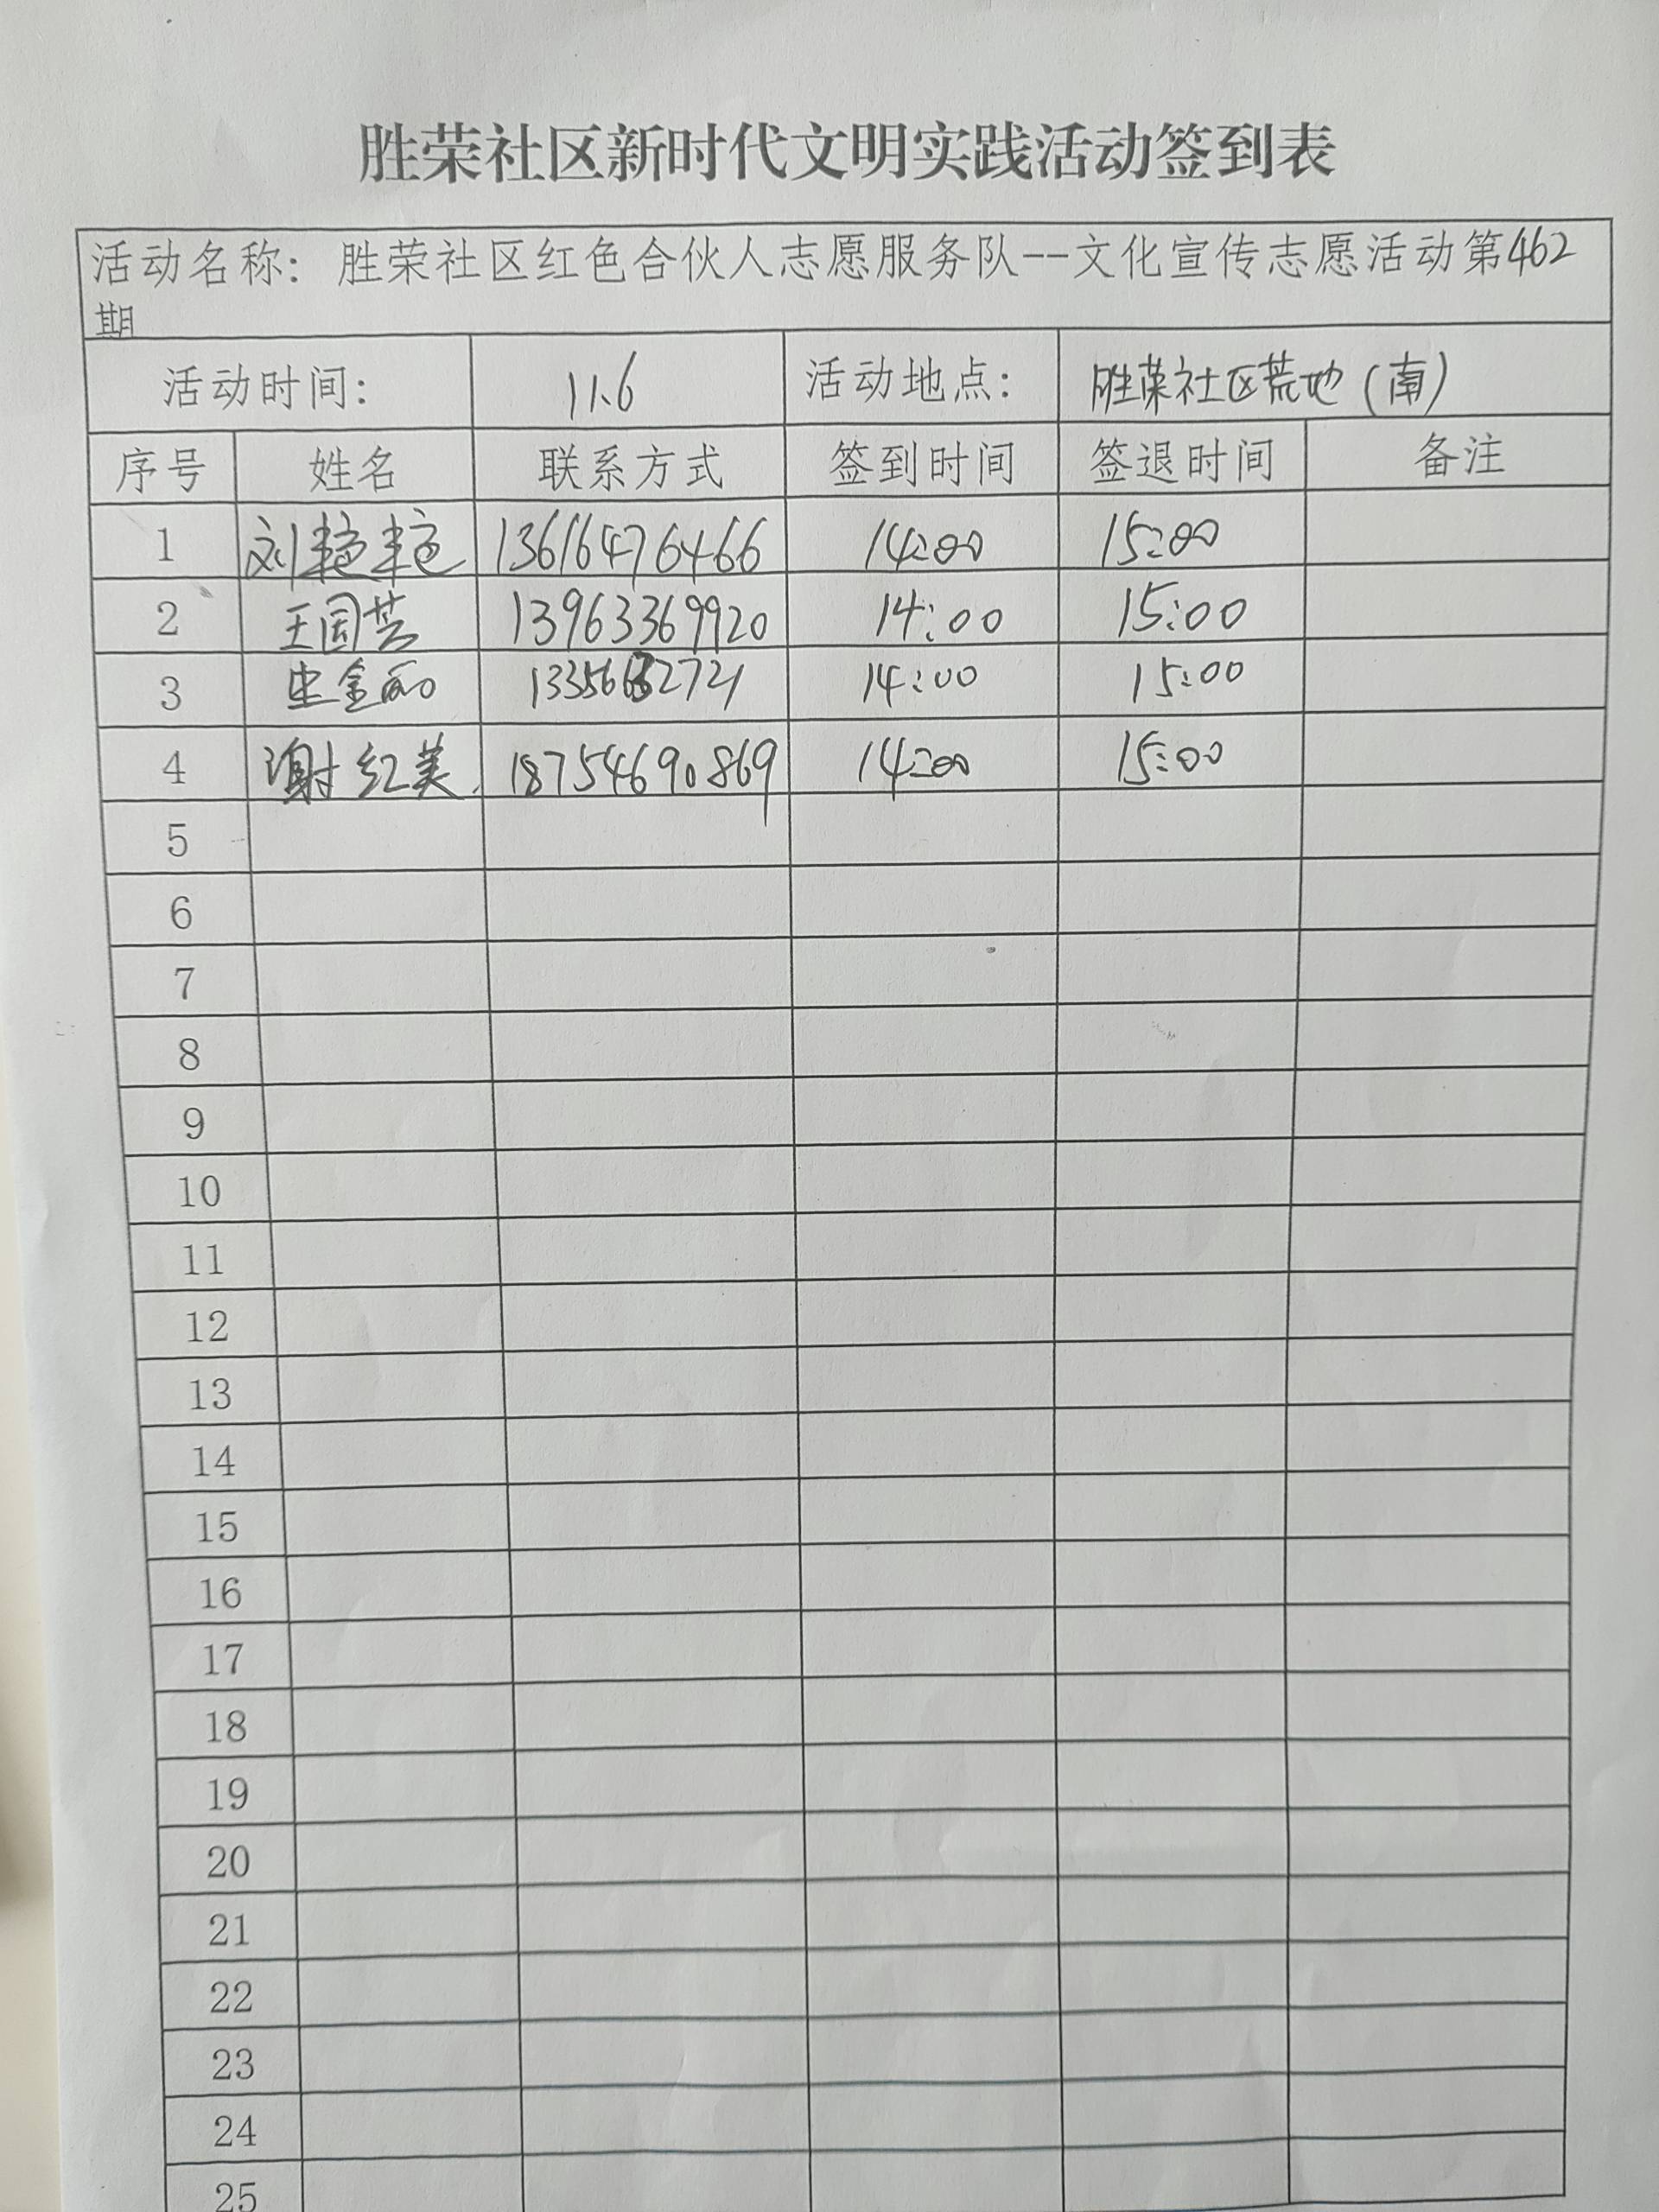 胜荣社区新时代文明实践活动签到表
活动名称：胜荣社区红色合伙人志愿服务队--文化宣传志愿活动第462
期
活动时间： 11.6 活动地点： 胜荣社区荒地（南）
序号 姓名 联系方式 签到时间 签退时间 备注
1 刘艳艳 13616476466 14:00 15:00
2 王国芸 13963369920 14:00 15:00
3 金丽 14:00 15:00
4 谢红美 18754690869 14:00 15:00
5
6
7
8
9
10
11
12
13
14
15
16
17
18
19
20
21
22
23
24
25